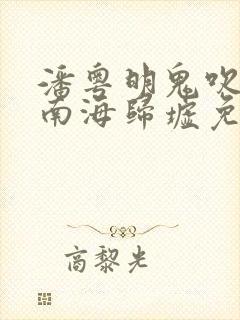 潘粤明鬼吹
南海歸墟免
高黎光